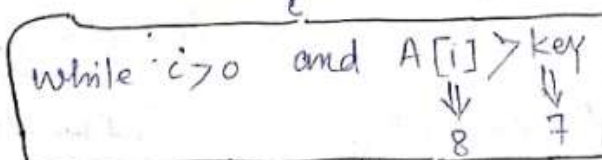 while i>0 and A[i] > key
⇓ ⇓
8 7